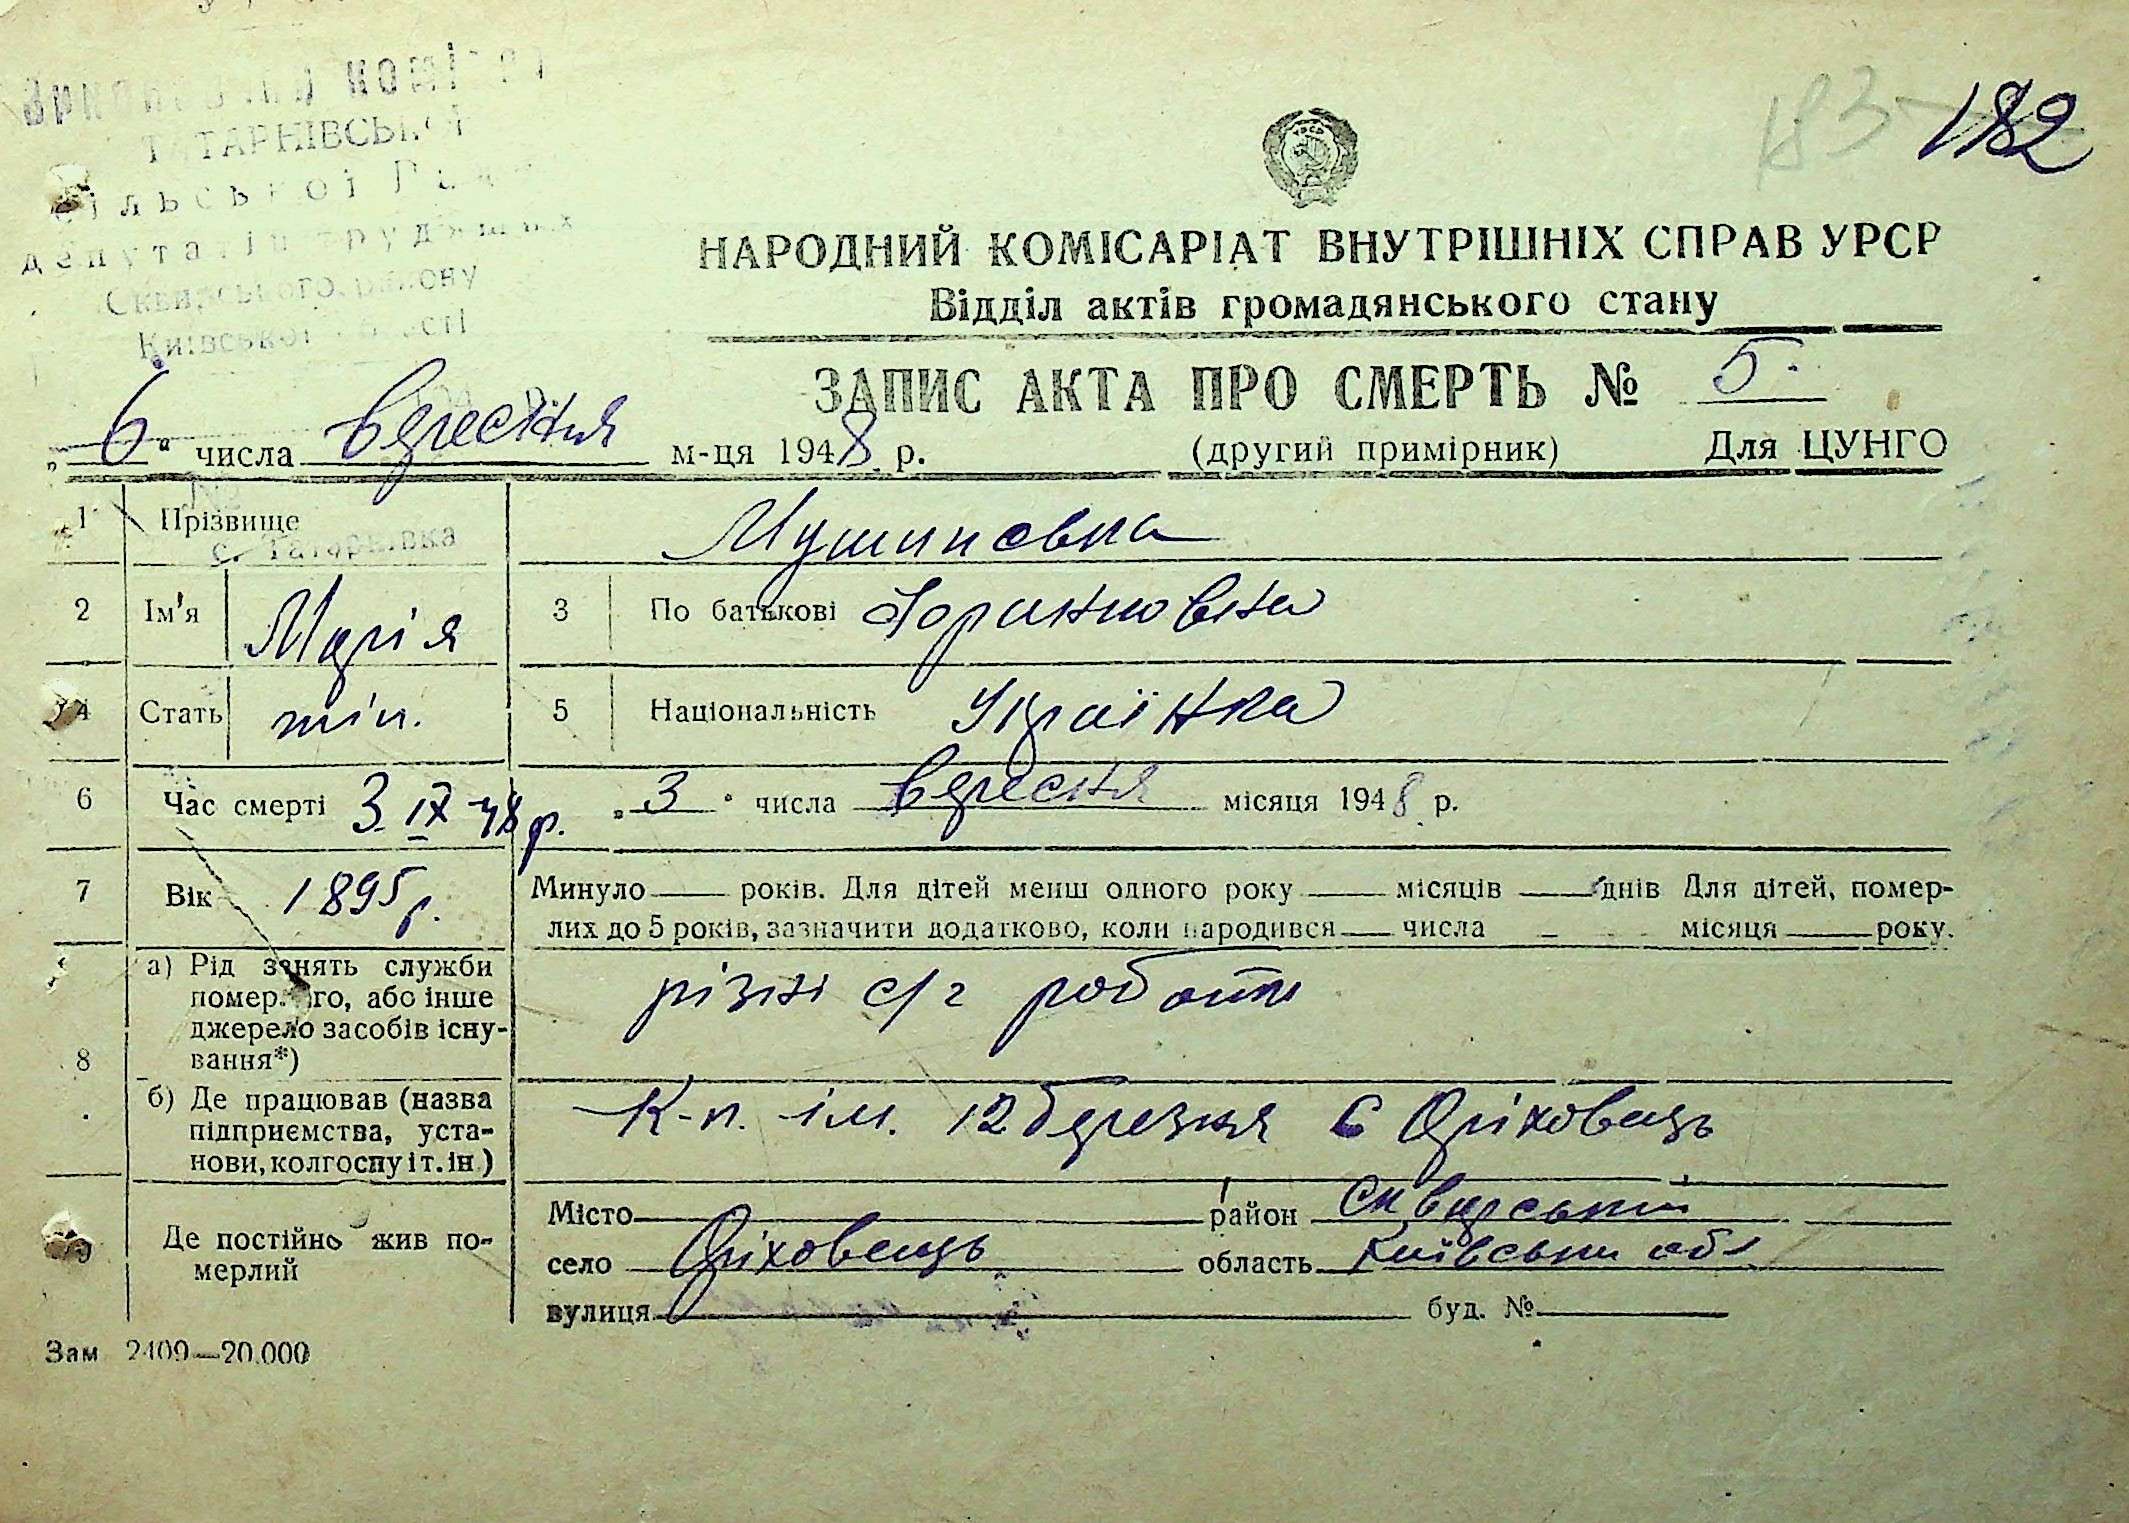 ТАТАРНІВСЬКОЇ
сільської Ради
депутатів трудящих
Сквирського району
Київської області
183 182
УРСР
НАРОДНИЙ КОМІСАРІАТ ВНУТРІШНІХ СПРАВ УРСР
Відділ актів громадянського стану
ЗАПИС АКТА ПРО СМЕРТЬ № 5.
„6“ числа вересня м-ця 1948 р. (другий примірник) Для ЦУНГО
1 Прізвище
с. Татарнівка
2 Ім'я Марія 3 По батькові
4 Стать жін. 5 Національність Українка
6 Час смерті 3 IX 48 р. „3“ числа вересня місяця 1948 р.
7 Вік 1895 р. Минуло — років. Для дітей менш одного року — місяців — днів Для дітей, помер-
лих до 5 років, зазначити додатково, коли народився — числа — місяця — року.
8 а) Рід занять служби
померлого, або інше
джерело засобів існу-
вання*)
різні с/г роботи
б) Де працював (назва
підприємства, уста-
нови, колгоспу і т. ін.)
К-п. ім. 12 березня с Оріховець
9 Де постійно жив по-
мерлий
Місто район Сквирський
село Оріховець область Київськи обл
вулиця буд. №
Зам 2409—20.000